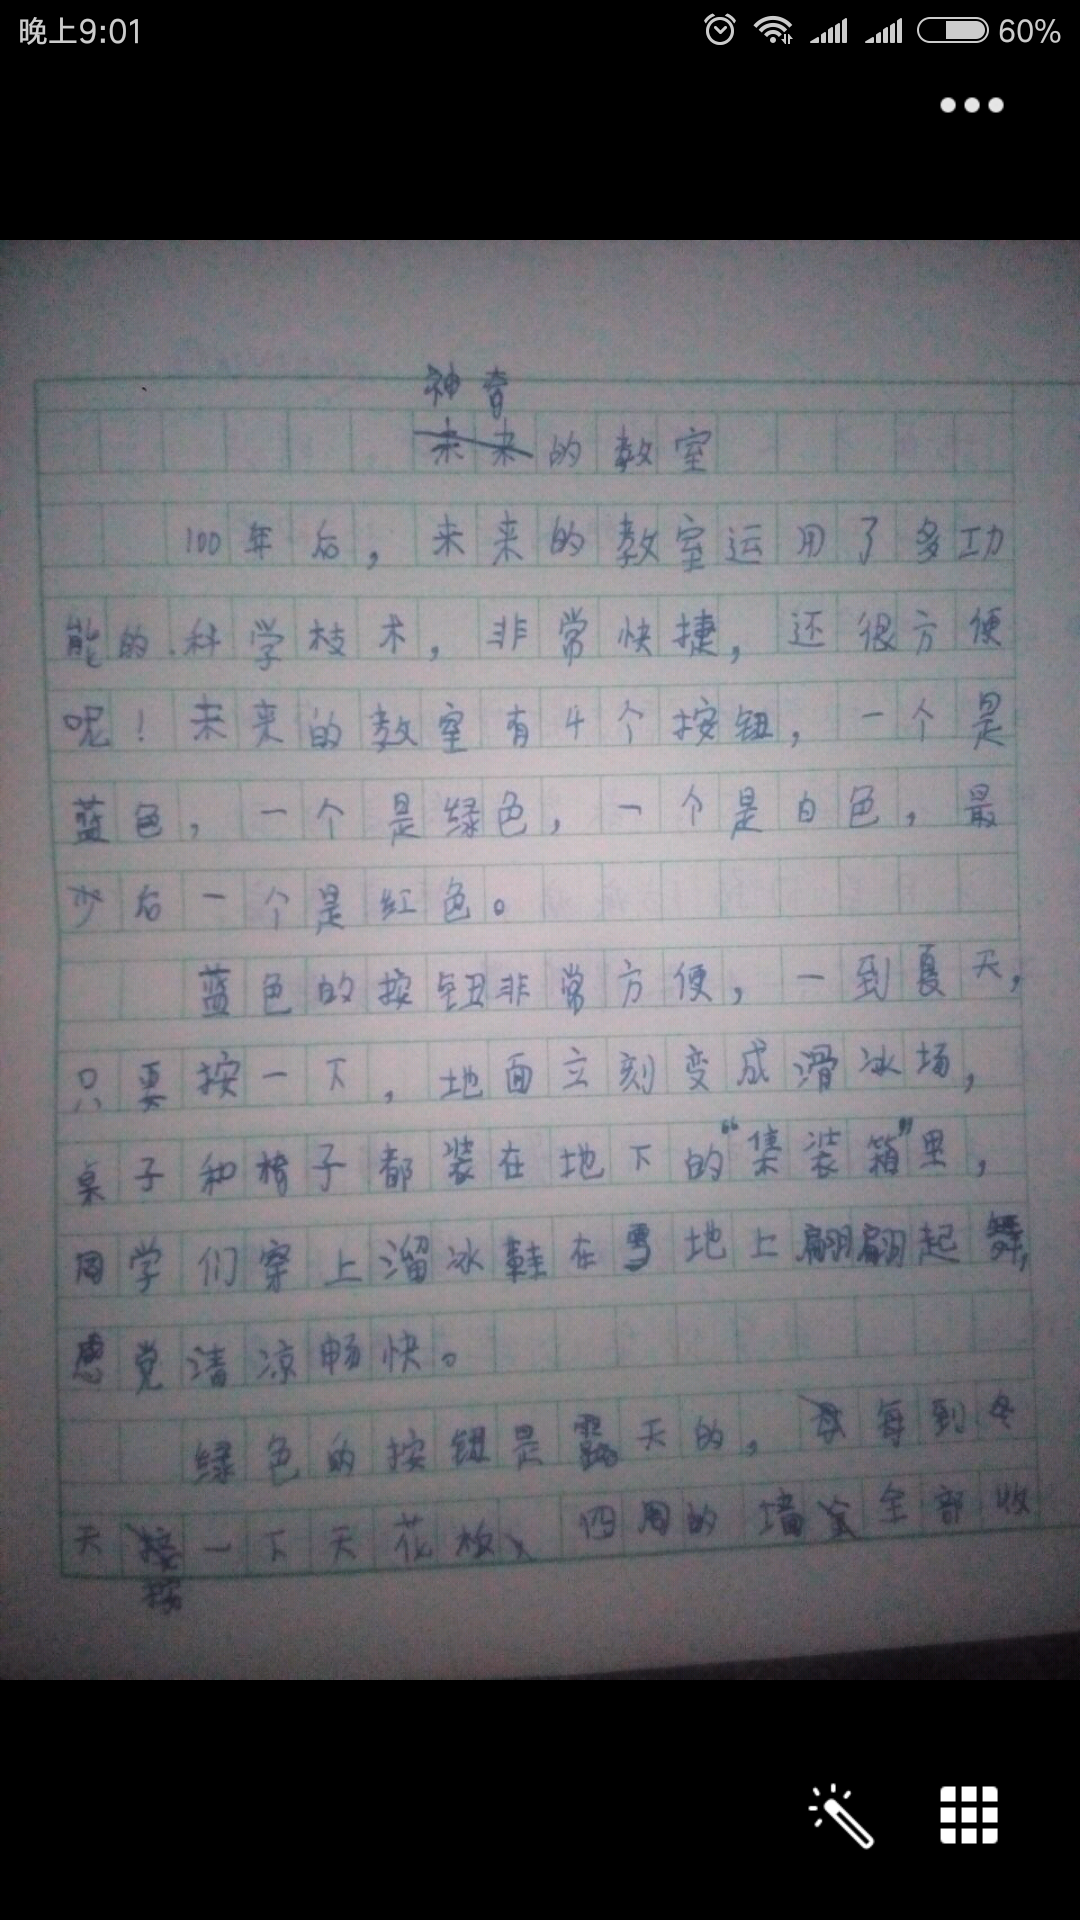 晚上9:01
60%
神奇
未来的教室
100年后，未来的教室运用了多功
能的科学技术，非常快捷，还很方便
呢！未来的教室有4个按钮，一个是
蓝色，一个是绿色，一个是白色，最
后一个是红色。
蓝色的按钮非常方便，一到夏天，
只要按一下，地面立刻变成滑冰场，
桌子和椅子都装在地下的“集装箱”里，
同学们穿上溜冰鞋在雪地上翩翩起舞，
感觉清凉畅快。
绿色的按钮是露天的，每到冬
天按一下天花板、四周的墙全部收